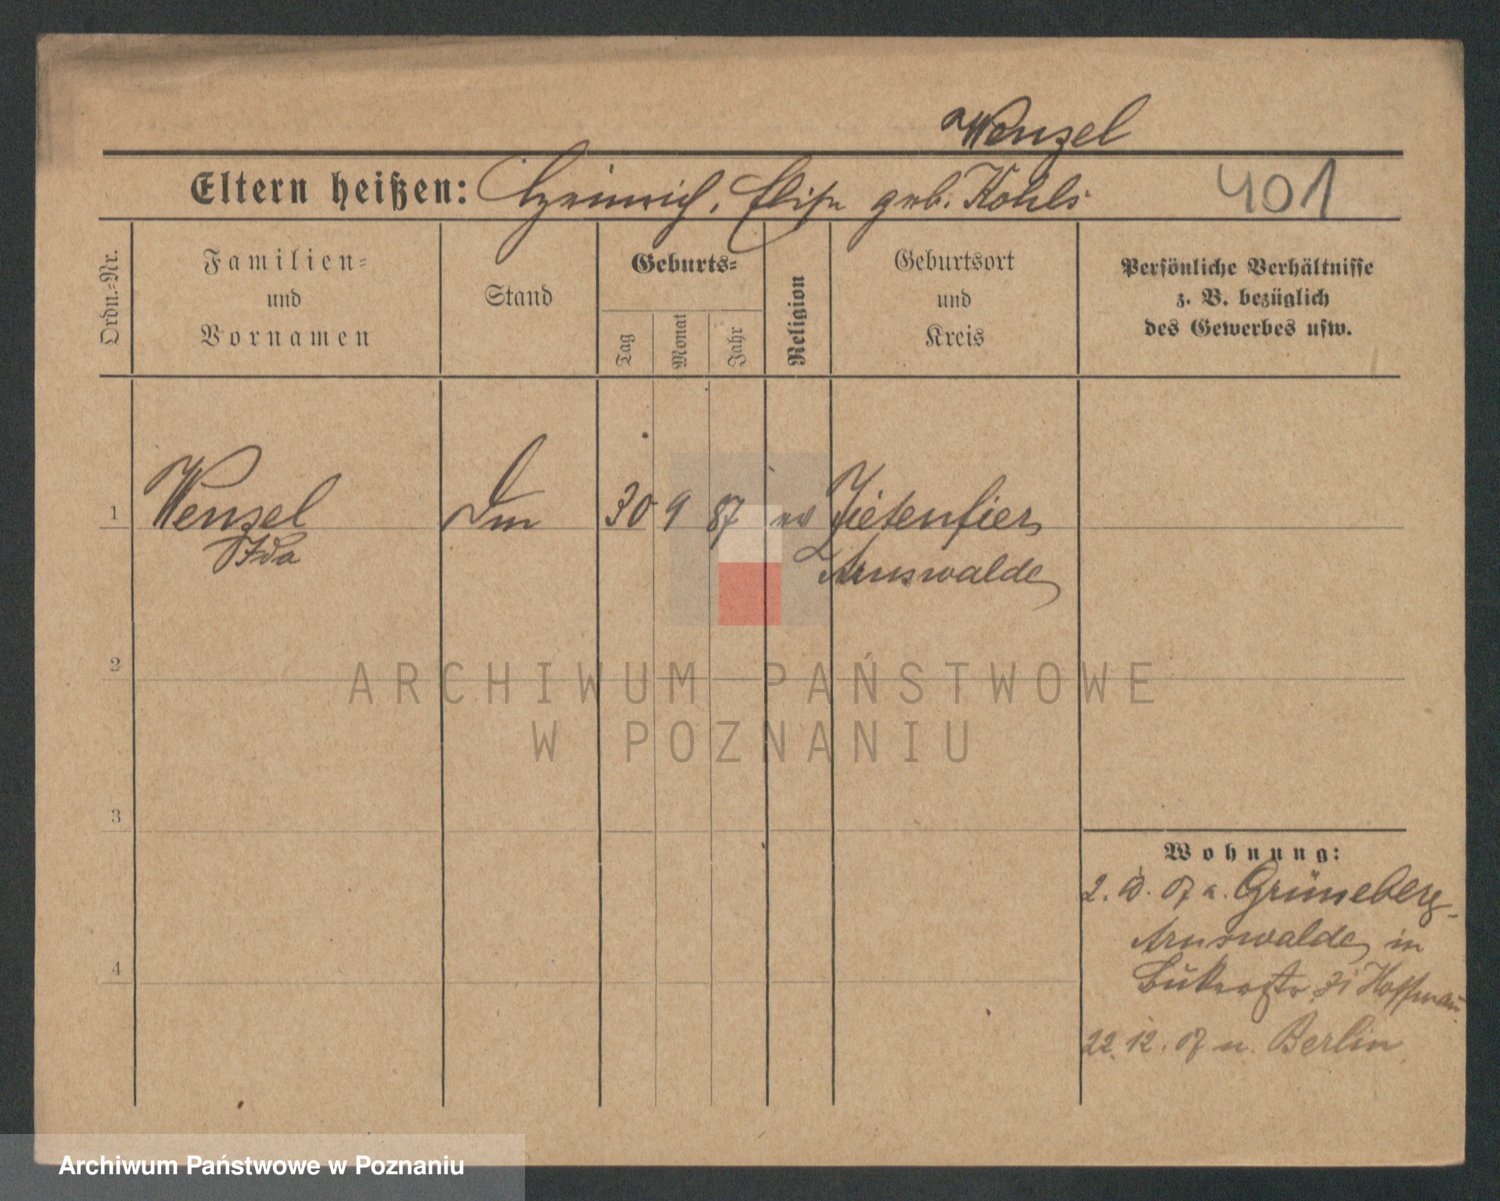 Wenzel
Eltern heißen: Heinrich, Elise geb. Kohls 401
Ordn.-Nr.
Familien- und Vornamen
Stand
Geburts-
Tag
Monat
Jahr
Religion
Geburtsort und Kreis
Persönliche Verhältnisse
z. B. bezüglich
des Gewerbes usw.
1 Wenzel 30 9 87 ev Zietenfier
Ida Arnswalde
2
3
4
Wohnung:
2. a. Grüneberg-
Arnswalde in
Hoffmann
22.12. n. Berlin
ARCHIWUM PAŃSTWOWE
W POZNANIU
Archiwum Państwowe w Poznaniu